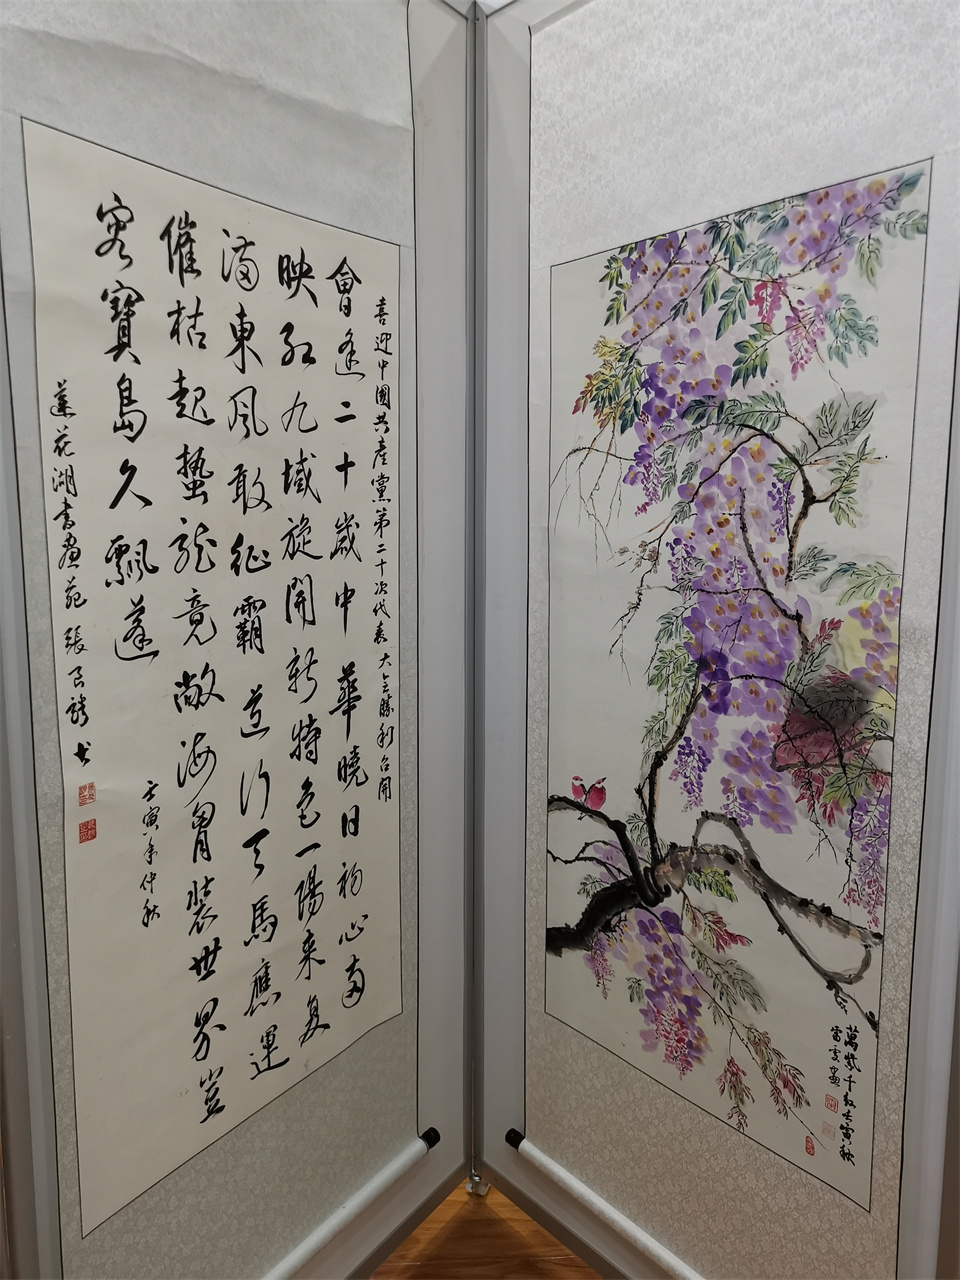 喜迎中國共產黨第二十次代表大会勝利召開
會逢二十歲中華曉日初心南
映紅九域旋開新特色一陽來复
滿東風敢征霸道行天馬應運
催枯起蟄龍竟敞海胃裝世界豈
容寶島久飄蓬
壬寅年仲秋
蓮花湖書畫苑張
萬紫千紅壬寅秋
畫